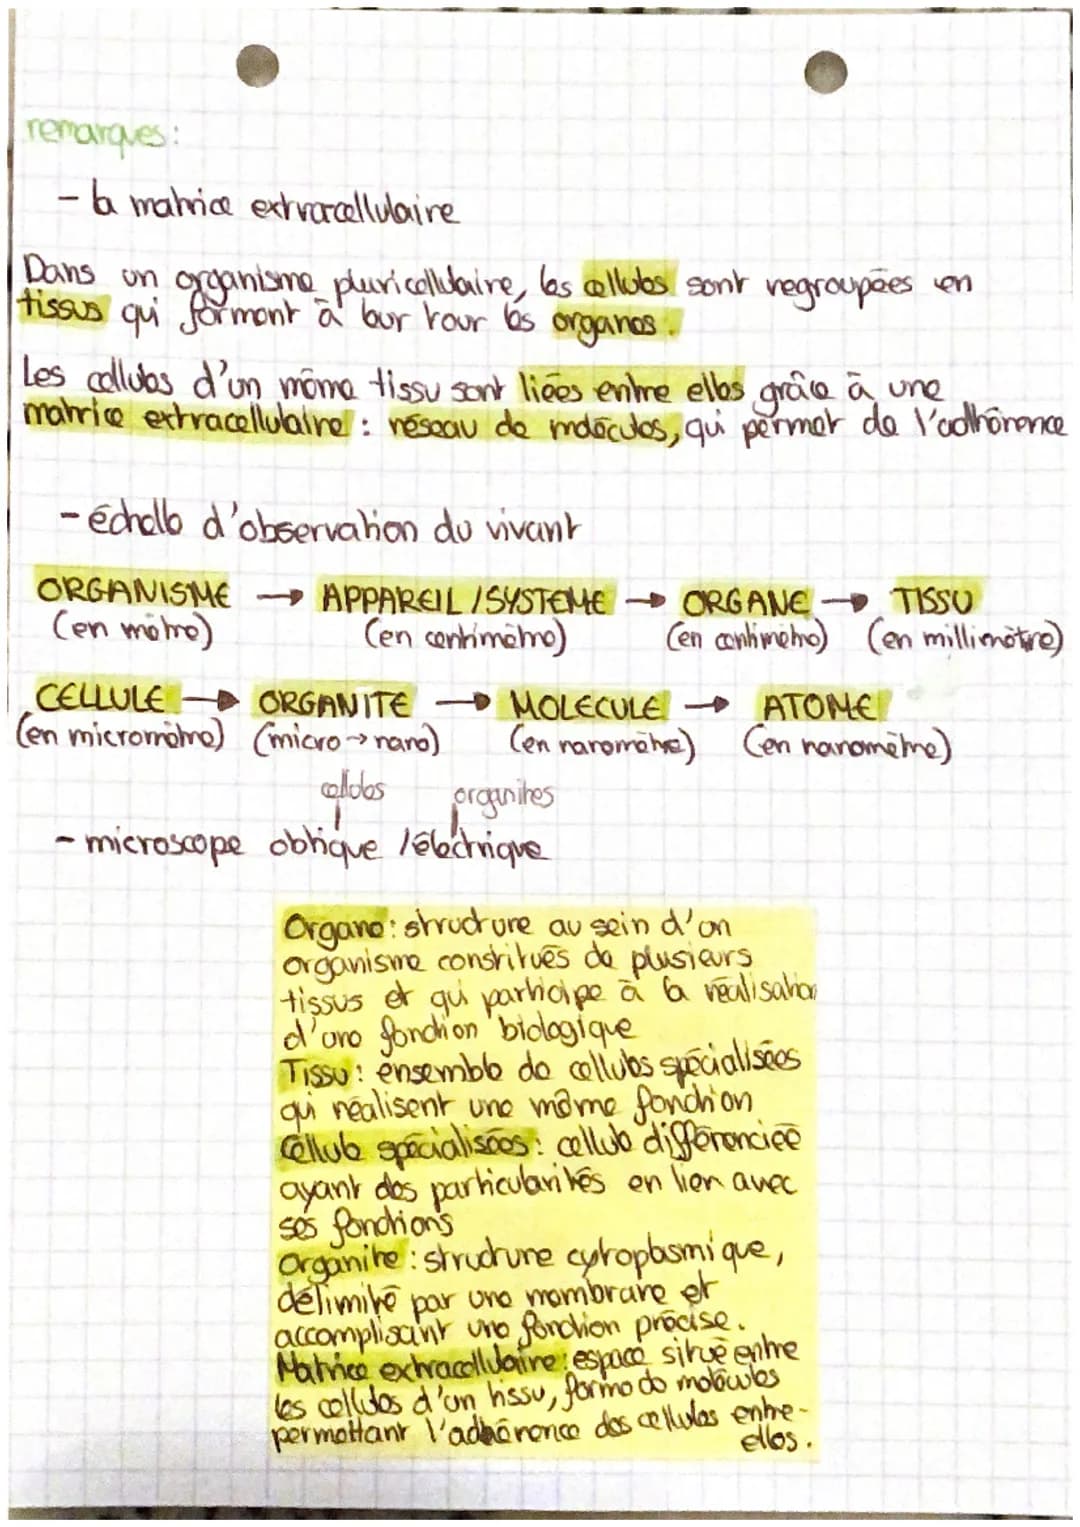 remarques :
- la matrice extracellulaire
Dans un organisme pluricellulaire, les cellules sont regroupées en
tissus qui forment à leur tour les organes.
Les cellules d'un même tissu sont liées entre elles grâce à une
matrice extracellulaire : réseau de molécules, qui permet de l'adhérence
- échelle d'observation du vivant
ORGANISME → APPAREIL / SYSTEME → ORGANE → TISSU
(en mètre) (en centimètre) (en centimètre) (en millimètre)
CELLULE → ORGANITE → MOLECULE → ATOME
(en micromètre) (micro → nano) (en nanomètre) (en nanomètre)
cellules organites
- microscope obtique / électrique
Organe : structure au sein d'un
organisme constitués de plusieurs
tissus et qui participe à la réalisation
d'une fonction biologique
Tissu : ensemble de cellules spécialisées
qui réalisent une même fonction
Cellule spécialisées : cellule différenciée
ayant des particularités en lien avec
ses fonctions
Organite : structure cytoplasmique,
délimité par une membrane et
accomplisant une fonction précise.
Matrice extracellulaire : espace situé entre
les cellules d'un tissu, formé de molécules
permettant l'adhérence des cellules entre-
elles.